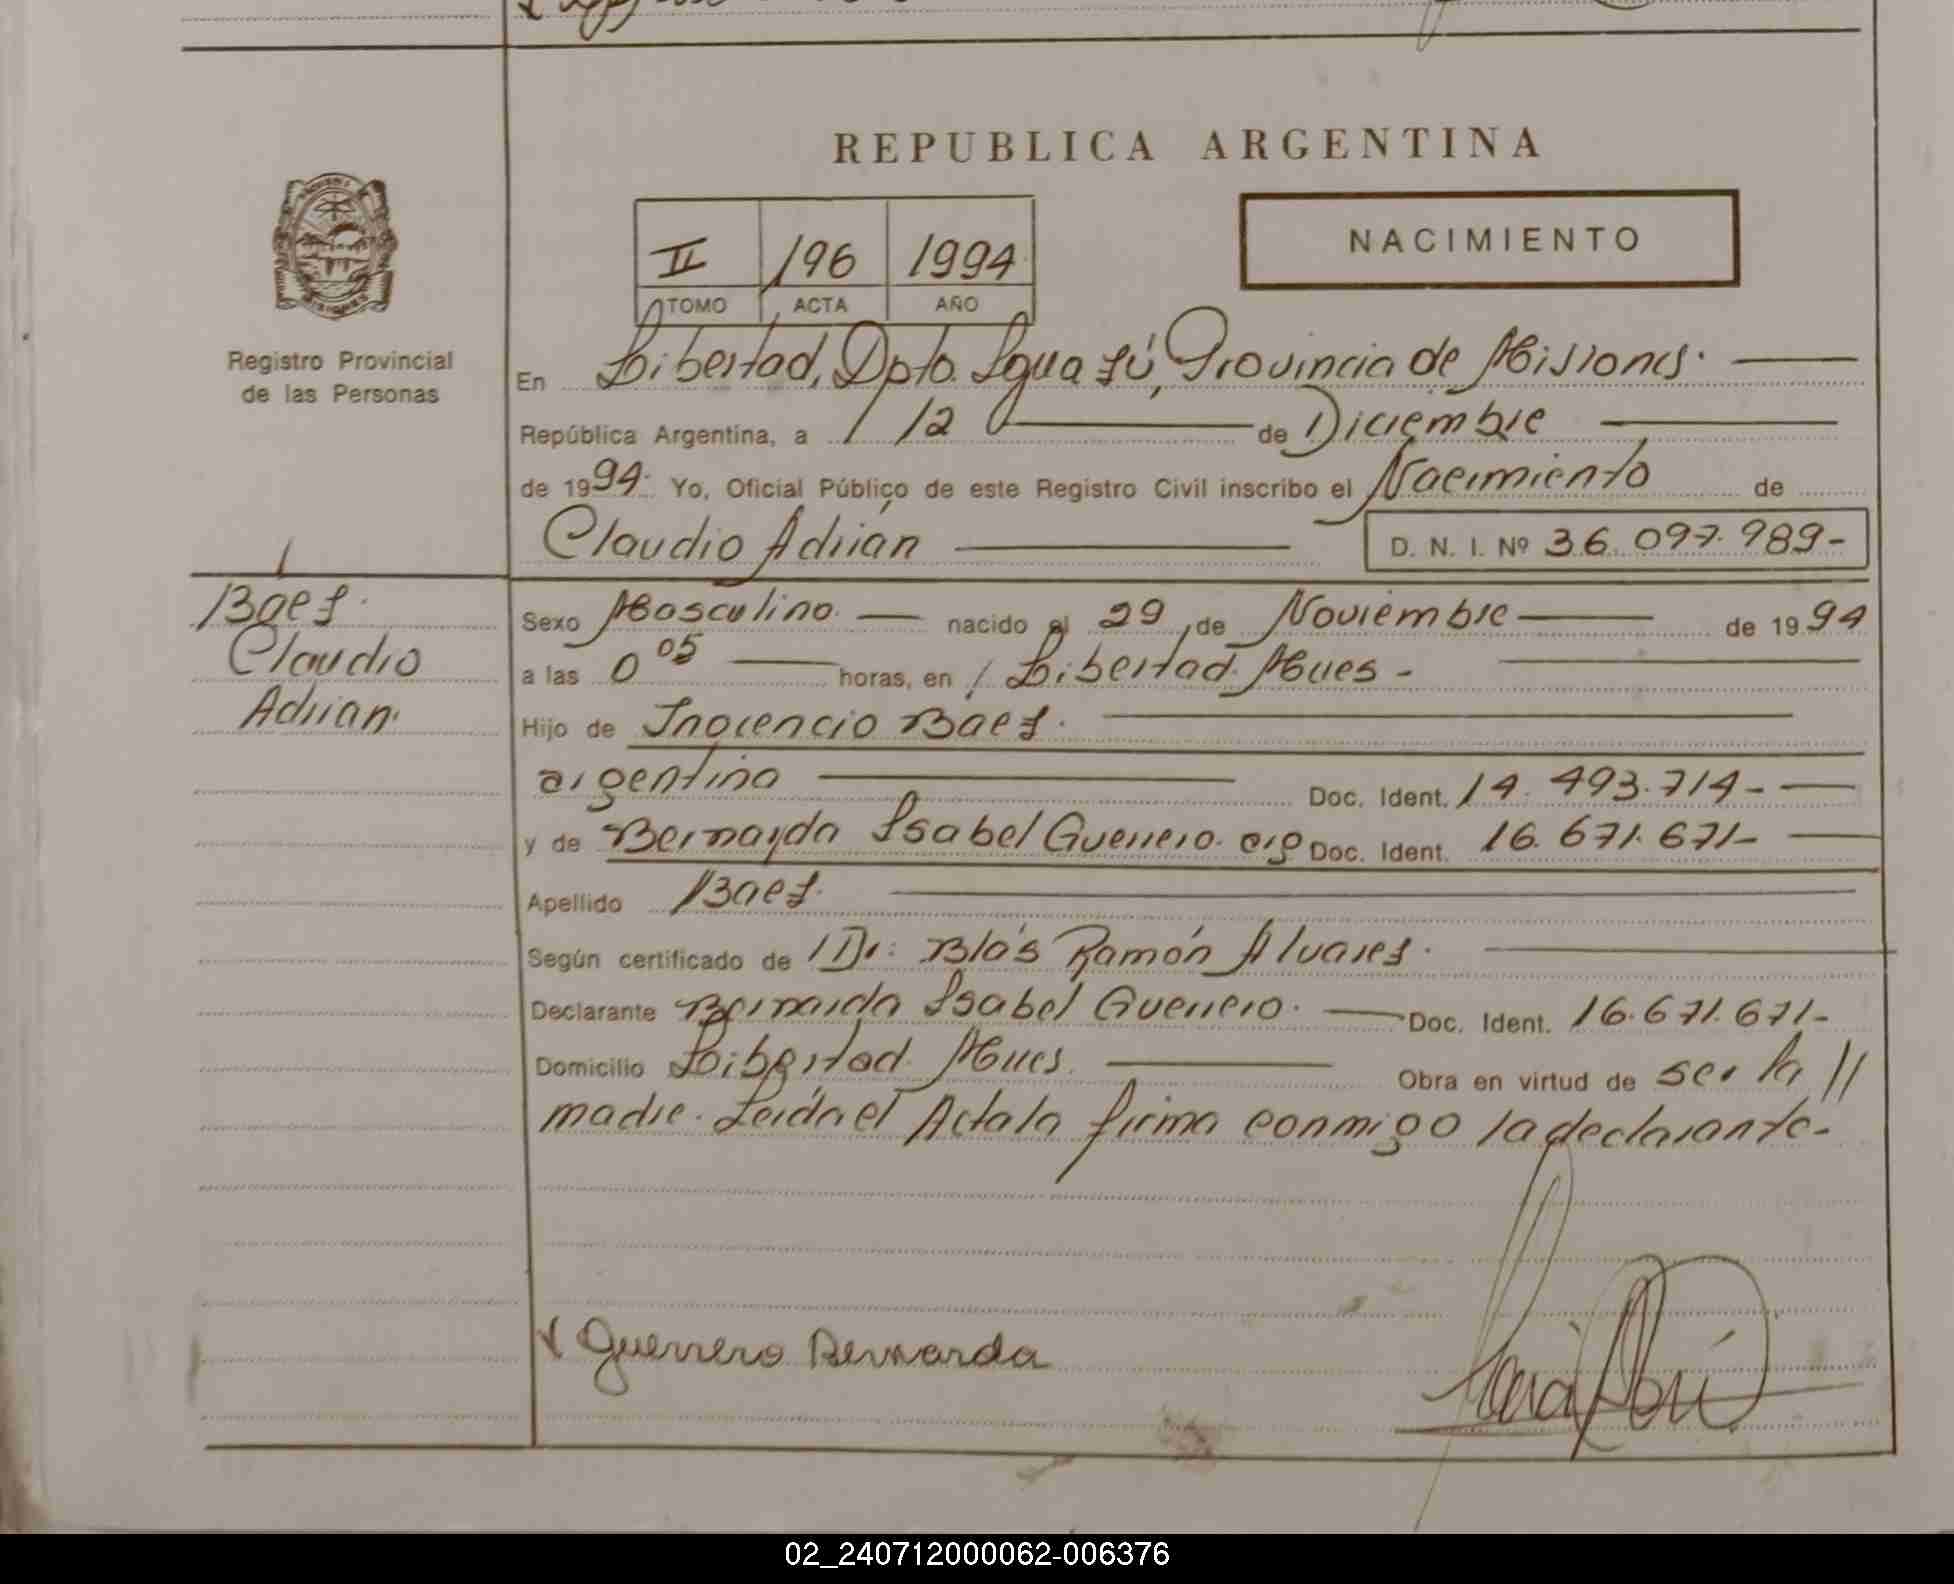 REPUBLICA ARGENTINA
II 196 1994
TOMO ACTA AÑO
NACIMIENTO
Registro Provincial
de las Personas
En Libertad, Dpto. Iguazú, Provincia de Misiones.
República Argentina, a 12 de Diciembre
de 1994. Yo, Oficial Público de este Registro Civil inscribo el Nacimiento de
Claudio Adrián D. N. I. Nº 36.097.989-
Baez.
Claudio
Adrian.
Sexo Masculino. nacido el 29 de Noviembre de 1994
a las 0 05 horas, en Libertad. Mnes-
Hijo de Inocencio Baez.
argentina Doc. Ident. 14.493.714-
y de Bernarda Isabel Guerrero. arg Doc. Ident. 16.671.671-
Apellido Baez.
Según certificado de Dr: Blás Ramón Alvarez.
Declarante Bernarda Isabel Guerrero. Doc. Ident. 16.671.671-
Domicilio Libertad. Mnes. Obra en virtud de ser la //
madre. Leida el Acta la firma conmigo la declarante-
x Guerrero Bernarda
02_240712000062-006376